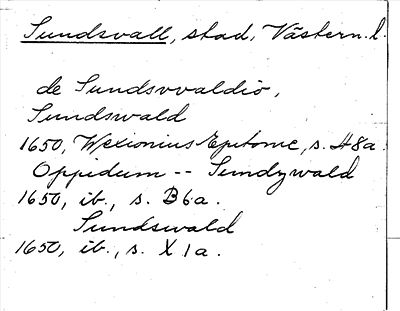 Sundsvall, stad, Västern. l.
de Sundsvvaldiö,
Sundswald
1650, Wexionius Epitome, s. H8a.
Oppidum -- Sundzwald
1650, ib., s. B6a.
Sundswald
1650, ib., s. X1a.